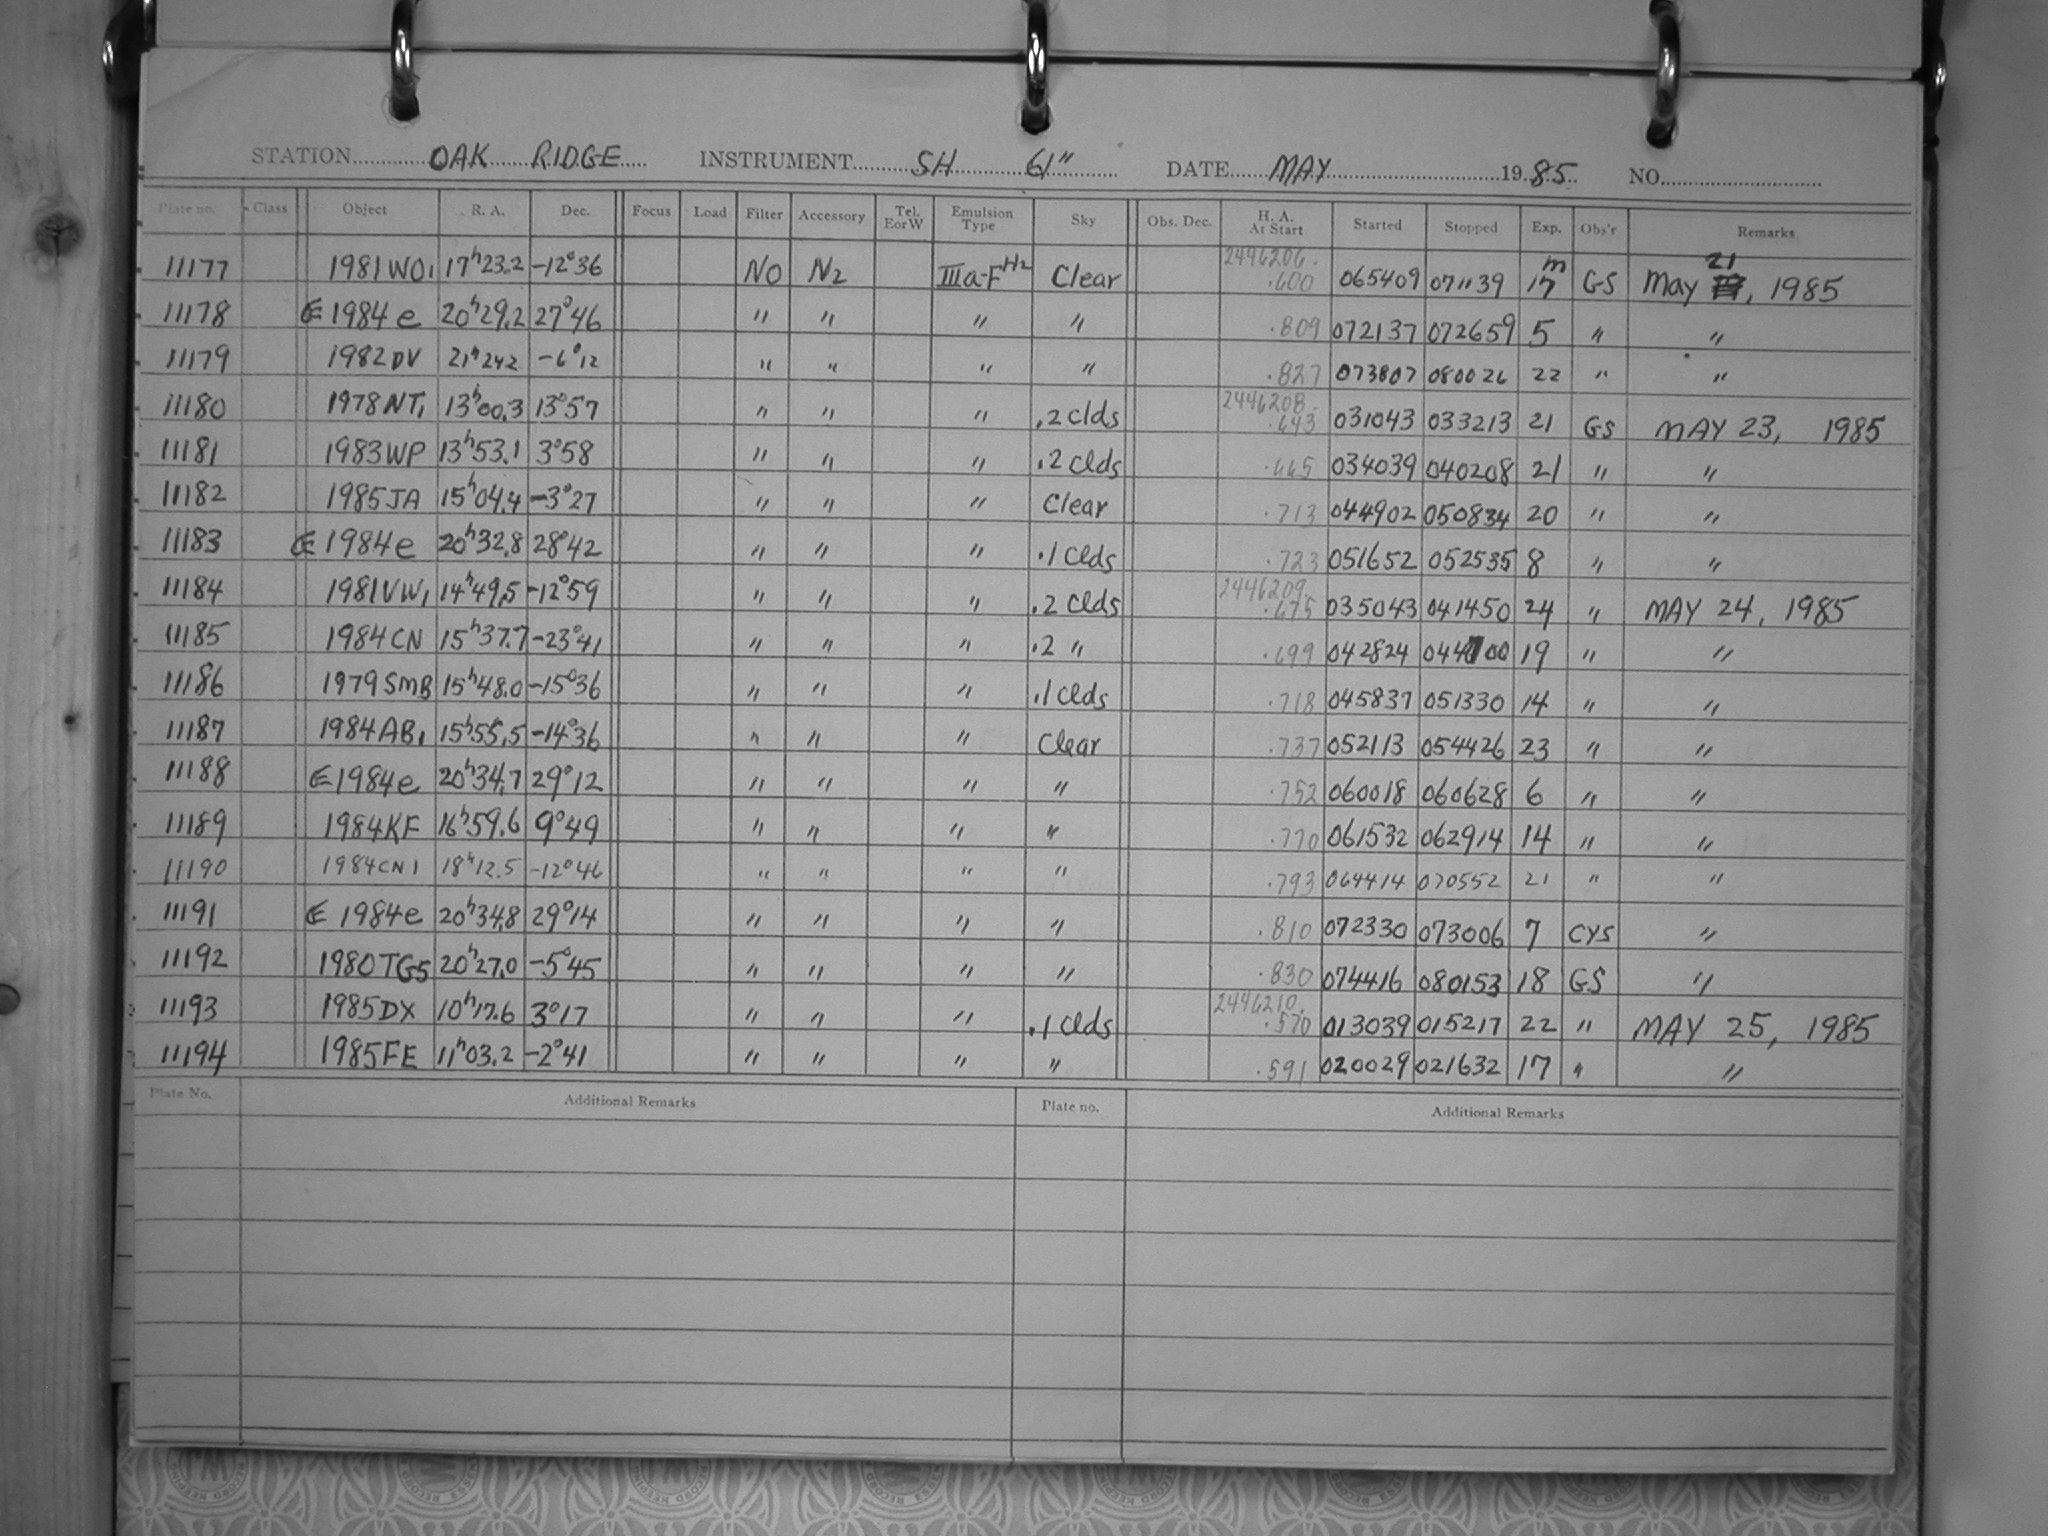 STATION OAK RIDGE INSTRUMENT SH 61" DATE MAY 1985 NO.
Plate no. Class Object R. A. Dec. Focus Load Filter Accessory Tel. E or W Emulsion Type Sky Obs. Dec. H. A. At Start Started Stopped Exp. Obs'r Remarks
11177 1981WO1 17h23.2 -12°36 NO N2 IIIa-F H2 Clear 2446206. 065409 071139 17m GS May 21, 1985
11178 € 1984e 20h29.2 27°46 " " " " .809 072137 072659 5 " "
11179 1982DV 21h24.2 -6°12 " " " " .827 073807 080026 22 " "
11180 1978NT1 13h00.3 13°57 " " " .2 clds 2446208. .643 031043 033213 21 GS MAY 23, 1985
11181 1983WP 13h53.1 3°58 " " " .2 clds .665 034039 040208 21 " "
11182 1985JA 15h04.4 -3°27 " " " Clear .713 044902 050834 20 " "
11183 € 1984e 20h32.8 28°42 " " " .1 clds .723 051652 052535 8 " "
11184 1981VW1 14h49.5 -12°59 " " " .2 clds 2446209. .675 035043 041450 24 " MAY 24, 1985
11185 1984CN 15h37.7 -23°41 " " " .2 " .699 042824 19 " "
11186 1979SMB 15h48.0 -15°36 " " " .1 clds .718 045837 051330 14 " "
11187 1984AB1 15h55.5 -14°36 " " " Clear .737 052113 054426 23 " "
11188 € 1984e 20h34.7 29°12 " " " " .752 060018 060628 6 " "
11189 1984KF 16h59.6 9°49 " " " " .770 061532 062914 14 " "
11190 1984CN1 18h12.5 -12°46 " " " " .793 064414 070552 21 " "
11191 € 1984e 20h34.8 29°14 " " " " .810 072330 073006 7 CYS "
11192 1980TG5 20h27.0 -5°45 " " " " .830 074416 080153 18 GS "
11193 1985DX 10h17.6 3°17 " " " .1 clds 2446210. .570 013039 015217 22 " MAY 25, 1985
11194 1985FE 11h03.2 -2°41 " " " " .591 020029 021632 17 " "
Plate No. Additional Remarks Plate no. Additional Remarks